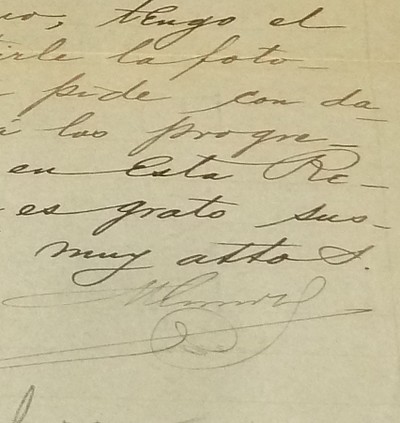 tengo el
tirle la foto-
pide con da-
á los progre-
en esta Re-
es grato sus-
muy atto S.